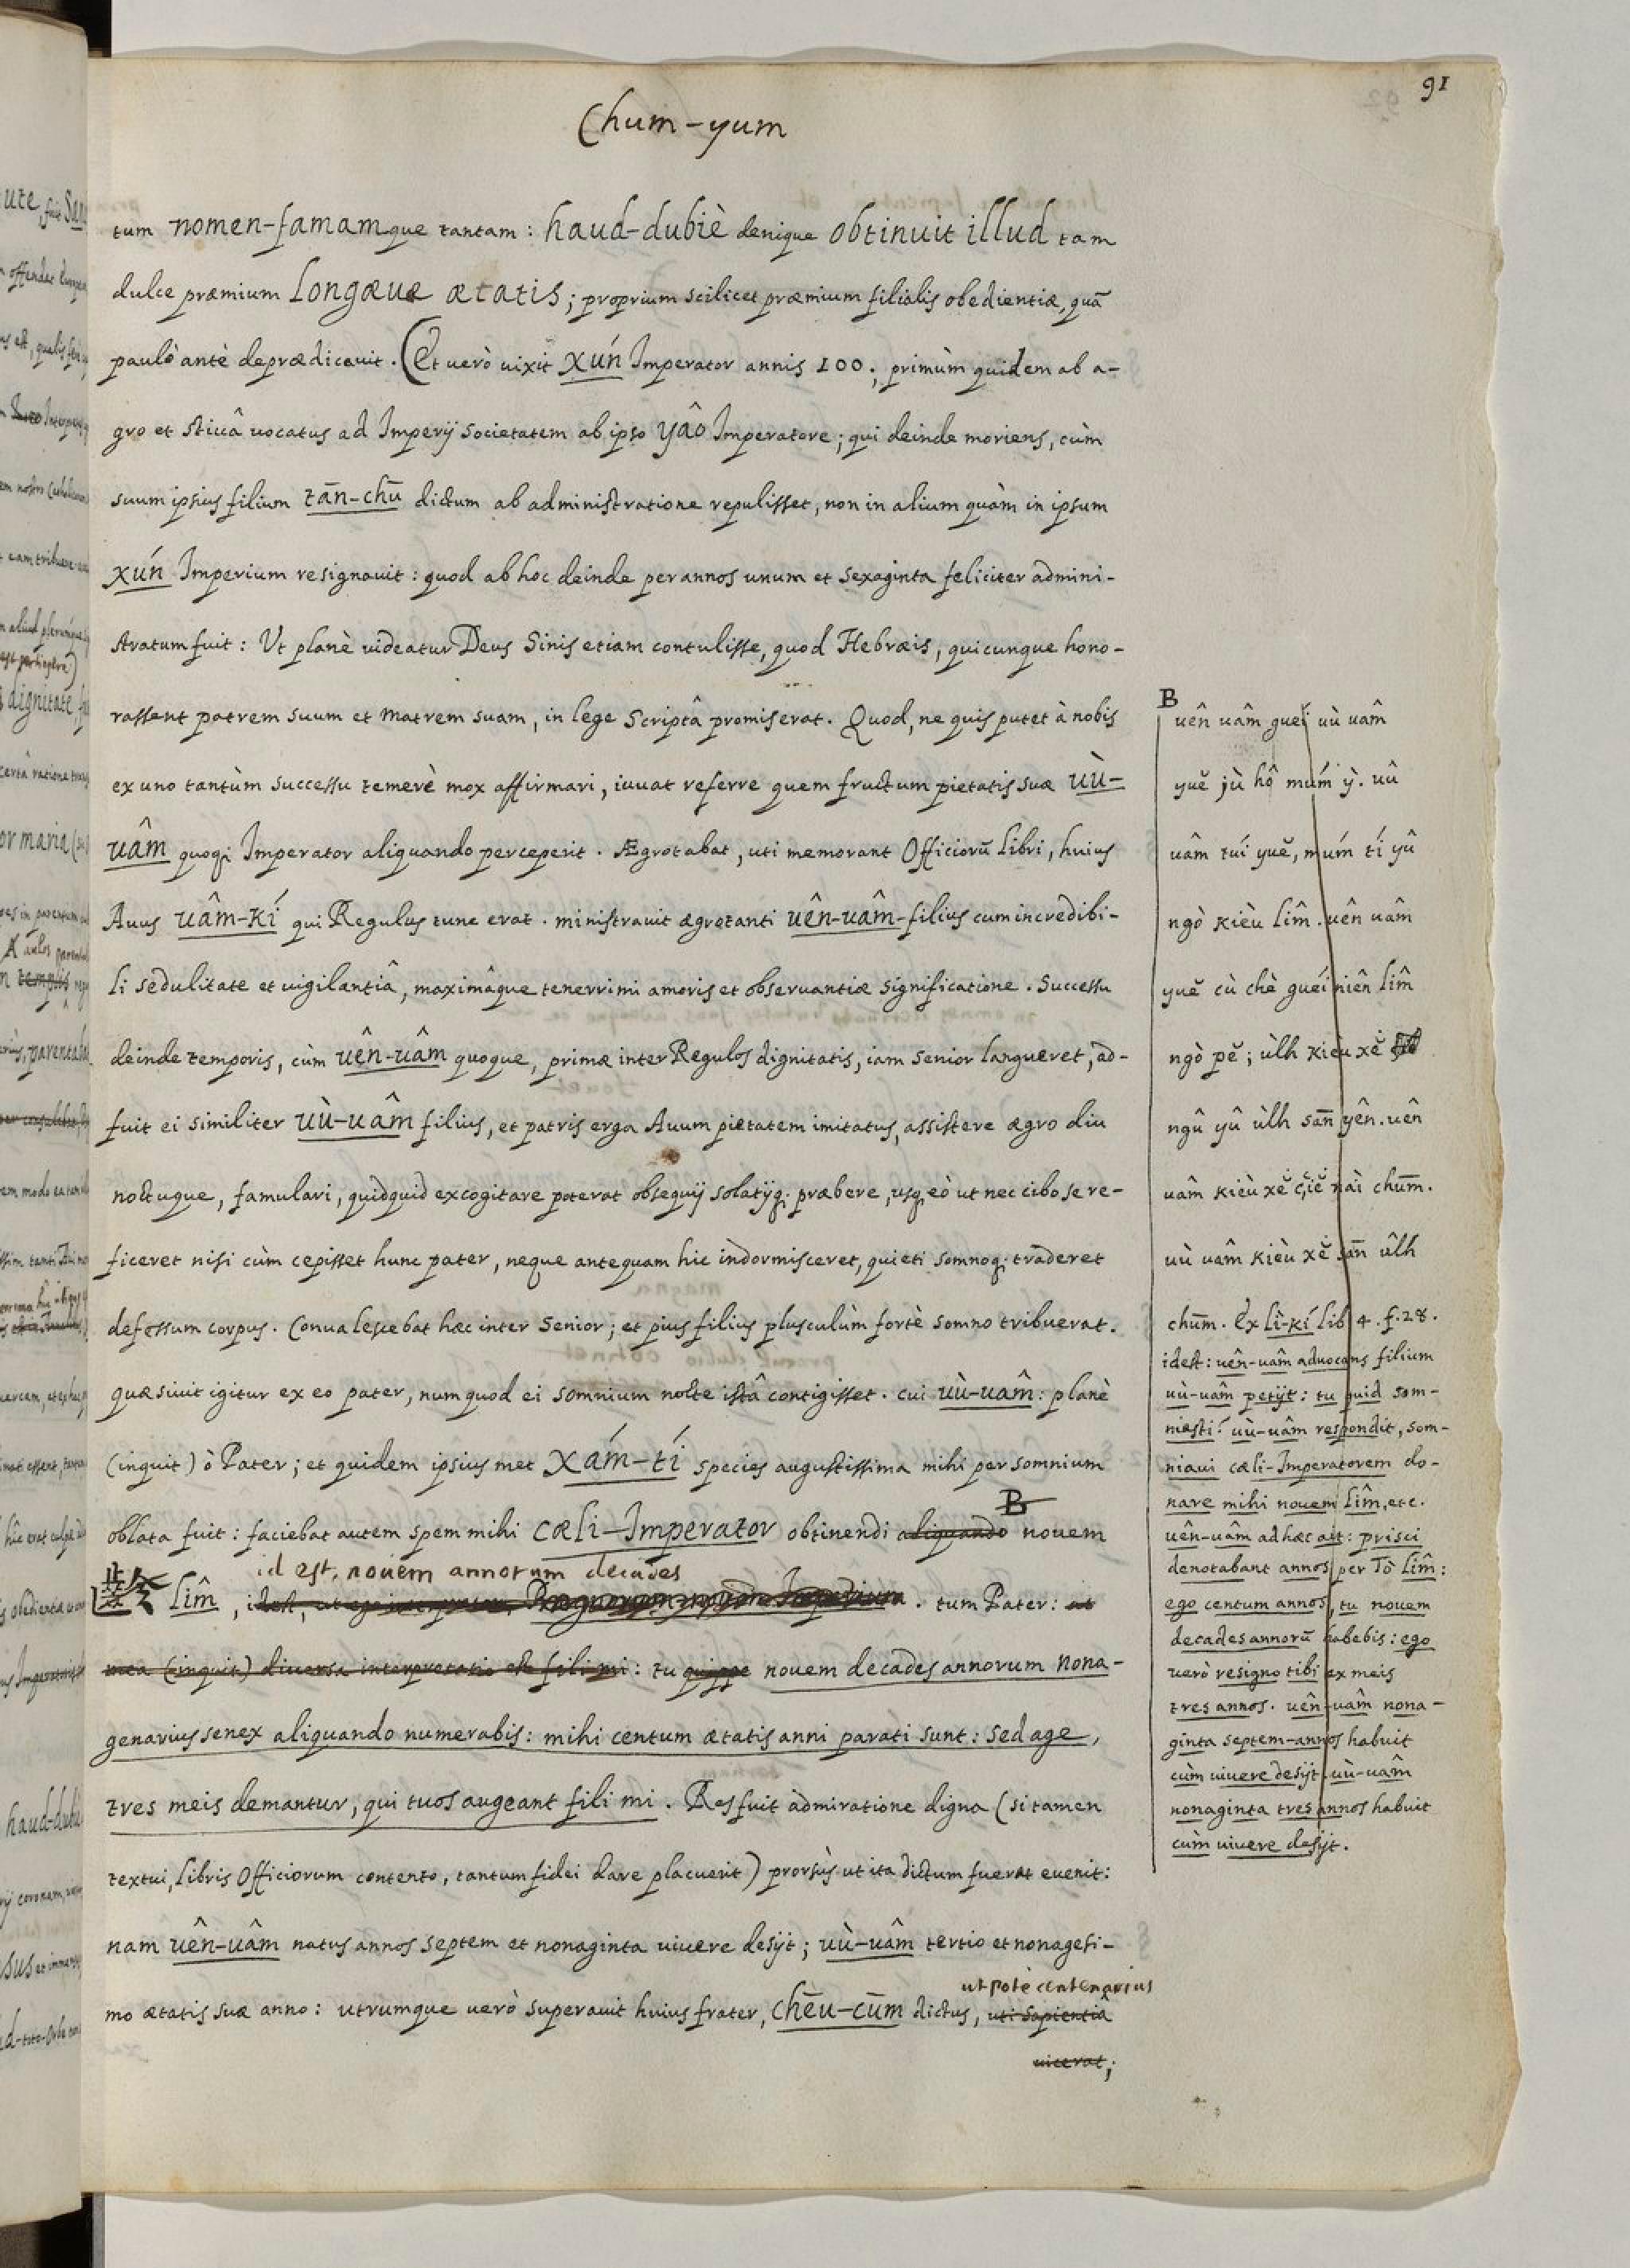 91
Chum-yum
tum nomen-famamque tantam: haud-dubiè denique obtinuit illud tam
dulce præmium longæuæ ætatis; proprium scilicet præmium filialis obedientiæ, quā
paulò antè deprædicauit. (Et uerò uixit xún Imperator annis 100; primùm quidem ab a-
gro et stiuâ uocatus ad Imperij societatem ab ipso yâo Imperatore; qui deinde moriens, cùm
suum ipsius filium tān-chū dictum ab administratione repulisset, non in alium quàm in ipsum
xún Imperium resignauit: quod ab hoc deinde per annos unum et sexaginta feliciter admini-
stratum fuit: Ut planè uideatur Deus Sinis etiam contulisse, quod Hebræis, quicunque hono-
rassent patrem suum et matrem suam, in lege scriptâ promiserat. Quod, ne quis putet à nobis
ex uno tantùm successu temerè mox affirmari, iuuat referre quem fructum pietatis suæ uù-
uâm quoq; Imperator aliquando perceperit. Ægrotabat, uti memorant Officiorū libri, huius
Auus uâm-kí qui Regulus tunc erat. ministrauit ægrotanti uên-uâm-filius cum incredibi-
li sedulitate et uigilantiâ, maximâque tenerrimi amoris et obseruantiæ significatione. Successu
deinde temporis, cùm uên-uâm quoque, primæ inter Regulos dignitatis, iam senior langueret, ad-
fuit ei similiter uù-uâm filius, et patris erga Auum pietatem imitatus, assistere ægro diu
noctuque, famulari, quidquid excogitare poterat obsequij solatijq; præbere, usq; eò ut nec cibo se re-
ficeret nisi cùm cepisset hunc pater, neque antequam hic indormisceret, quieti somnoq; traderet
defessum corpus. Conualescebat hæc inter senior; et pius filius plusculùm fortè somno tribuerat.
quæsiuit igitur ex eo pater, num quod ei somnium nocte istâ contigisset. cui uù-uâm: planè
(inquit) ò Pater; et quidem ipsius met xám-tí species augustissima mihi per somnium
oblata fuit: faciebat autem spem mihi cæli-Imperator obtinendi aliquando B nouem
id est, nouem annorum decades
齡 lîm, idest, ut ego interpretor, Regnorum nouem Imperium. tum Pater: ut
mea (inquit) diuersa interpretatio est fili mi: tu quippe nouem decades annorum nona-
genarius senex aliquando numerabis: mihi centum ætatis anni parati sunt: sed age,
tres meis demantur, qui tuos augeant fili mi. Res fuit admiratione digna (si tamen
textui, libris Officiorum contento, tantum fidei dare placuerit) prorsùs ut ita dictum fuerat euenit:
nam uên-uâm natus annos septem et nonaginta uiuere desijt; uù-uâm tertio et nonagesi-
utpotè centenarius
mo ætatis suæ anno: utrumque uerò superauit huius frater, chēu-cūm dictus, uti sapientiâ
uicerat;
B
uên uâm gueí uù uâm
yuĕ jù hô mum ỳ. uû
uâm tuí yuĕ, múm tí yû
ngò kièu lîm. uên uâm
yuĕ cù chè gueí niên lîm
ngò pĕ; ùlh kièu xĕ
ngû yû ùlh sān yên. uên
uâm kièu xĕ çiĕ nài chūm.
uù uâm kièu xĕ sān ûlh
chūm. Ex lì-kí lib 4. f. 28.
idest: uên-uâm aduocans filium
uù-uâm petijt: tu quid som-
niasti? uù-uâm respondit, som-
niaui cæli-Imperatorem do-
nare mihi nouem lîm, etc.
uên-uâm ad hæc ait: prisci
denotabant annos per Tò lîm:
ego centum annos, tu nouem
decades annorū habebis: ego
uerò resigno tibi ex meis
tres annos. uên-uâm nona-
ginta septem-annos habuit
cùm uiuere desijt. uù-uâm
nonaginta tres annos habuit
cùm uiuere desijt.